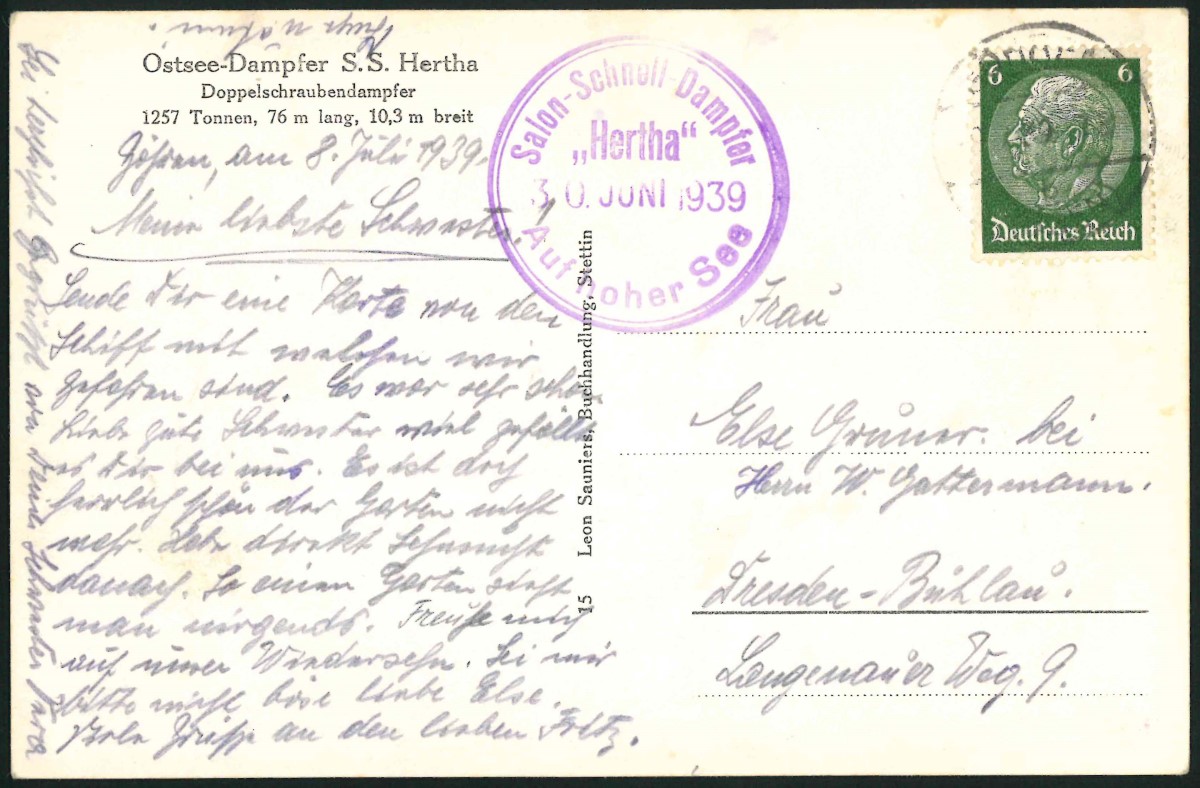 Ostsee-Dampfer S.S. Hertha
Doppelschraubendampfer
1257 Tonnen, 76 m lang, 10,3 m breit
Göhren, am 8. Juli 1939.
Meine liebste Schwester!
Sende Dir eine Karte von den
Schiff mit welchen wir
gefahren sind. Es war sehr schön
Liebe gute Schwester wie gefällt
es Dir bei uns. Es ist doch
herrlich schön der Garten nicht
wahr. Habe direkt Sehnsucht
danach. So einen Garten sieht
man nirgends. Freue mich
auf unser Wiedersehn. Sei mir
bitte nicht böse liebe Else.
Viele Grüsse an den lieben Fritz.
Sei herzlichst gegrüsst von Deiner Schwester
Salon-Schnell-Dampfer
„Hertha“
30. JUNI 1939
Auf hoher See
15 Leon Sauniers, Buchhandlung, Stettin
6 6
Deutsches Reich
Frau
Else Gruner. bei
Herrn W. Gattermann.
Dresden-Bühlau.
Langenauer Weg. 9.